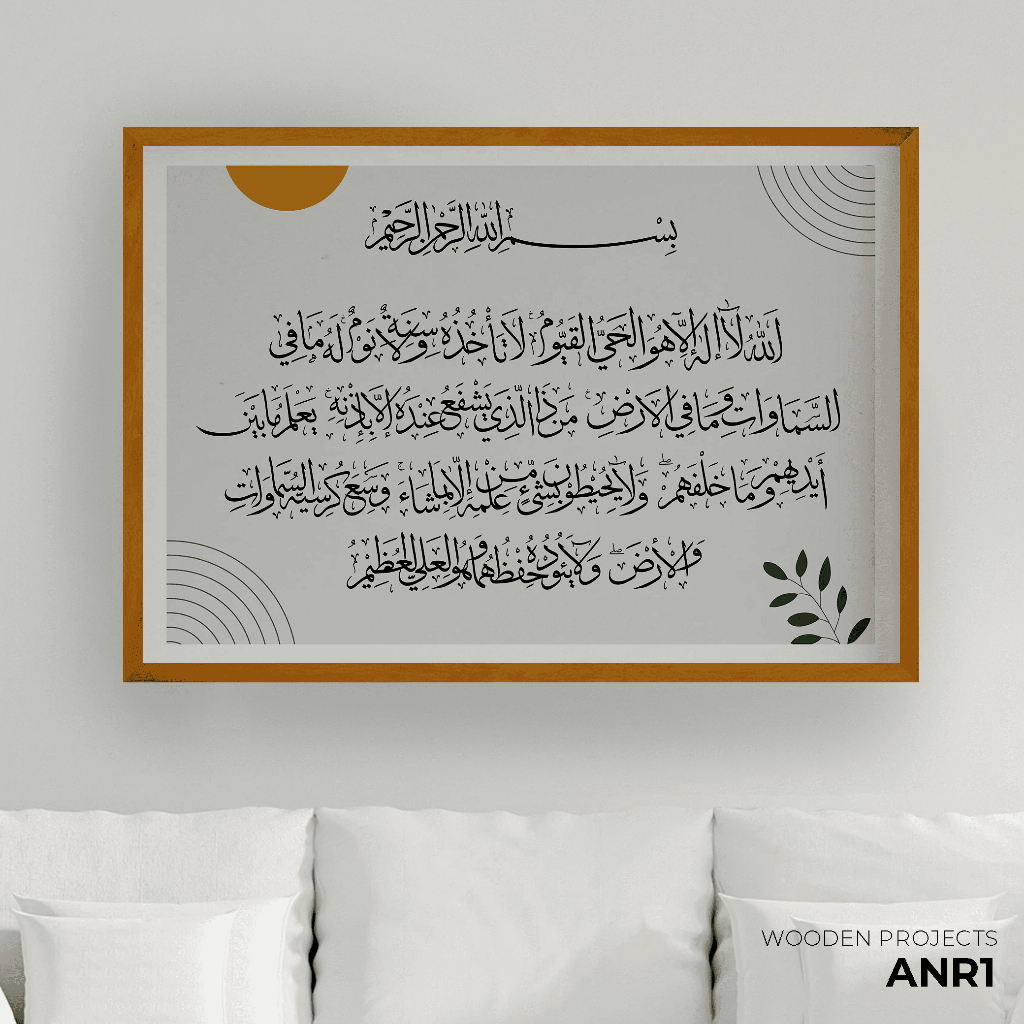 بِسْمِ اللهِ الرَّحْمٰنِ الرَّحِيْمِ
اَللّٰهُ لَآ اِلٰهَ اِلَّا هُوَ الْحَيُّ الْقَيُّوْمُ ۚ لَا تَأْخُذُهٗ سِنَةٌ وَّلَا نَوْمٌ ۚ لَهٗ مَا فِي
السَّمَاوَاتِ وَمَا فِي الْاَرْضِ ۗ مَنْ ذَا الَّذِيْ يَشْفَعُ عِنْدَهٗ اِلَّا بِاِذْنِهٖ ۚ يَعْلَمُ مَا بَيْنَ
أَيْدِيْهِمْ وَمَا خَلْفَهُمْ ۖ وَلَا يُحِيْطُوْنَ بِشَيْءٍ مِّنْ عِلْمِهٖ اِلَّا بِمَا شَاءَ ۚ وَسِعَ كُرْسِيُّهُ السَّمَاوَاتِ
وَالْأَرْضَ ۖ وَلَا يَئُوْدُهٗ حِفْظُهُمَا وَهُوَ الْعَلِيُّ الْعَظِيْمُ
WOODEN PROJECTS
ANR1